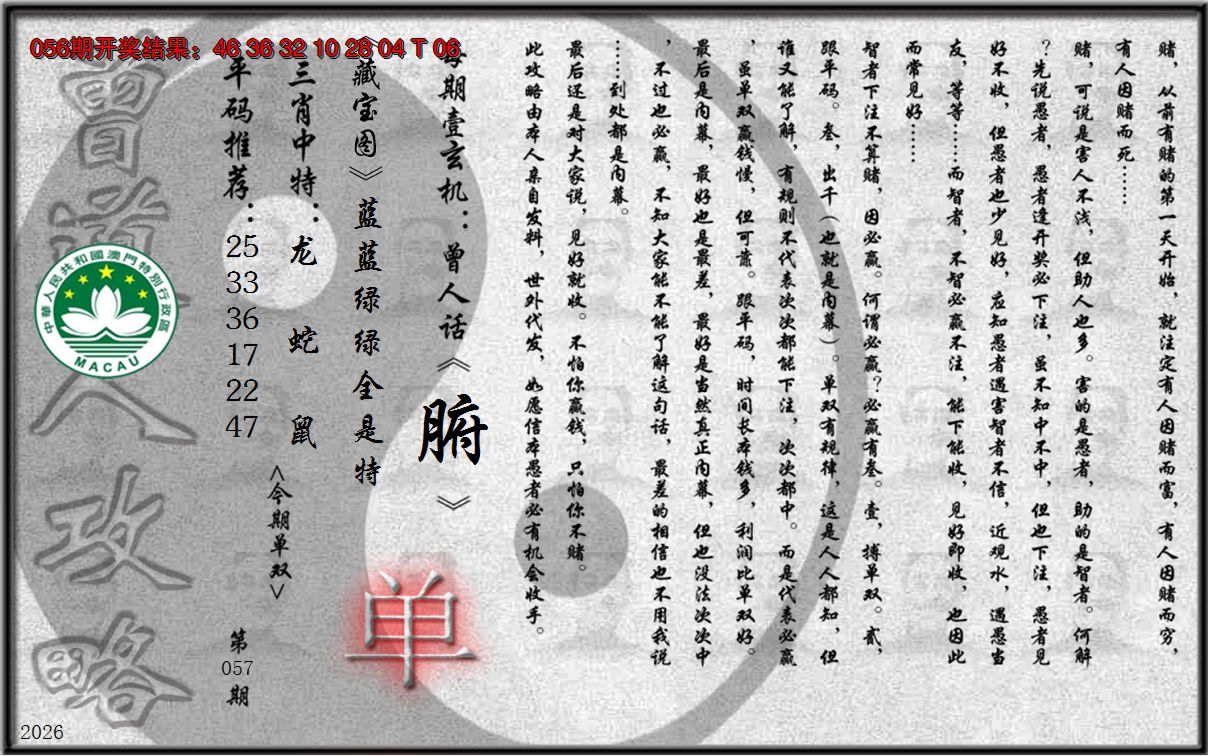 056期开奖结果：46 36 32 10 28 04 T 06
赌，从前有赌的第一天开始，就注定有人因赌而富，有人因赌而穷，
有人因赌而死……
赌，可说是害人不浅，但助人也多。害的是愚者，助的是智者。何解
？先说愚者，愚者逢开奖必下注，虽不知中不中，但也下注，愚者见
好不收，但愚者也少见好，应知愚者遇害智者不信，近观水，遇愚当
友，等等……而智者，不智必赢不注，能下能收，见好即收，也因此
而常见好……
智者下注不算赌，因必赢。何谓必赢？必赢有叁。壹，搏单双。贰，
跟平码。叁，出千（也就是内幕）。单双有规律，这是人人都知，但
谁又能了解，有规则不代表次次都能下注，次次都中。而是代表必赢
，虽单双赢钱慢，但可靠。跟平码，时间长本钱多，利润比单双好。
最后是内幕，最好也是最差，最好是当然真正内幕，但也没法次次中
，不过也必赢，不知大家能不能了解这句话，最差的相信也不用我说
……到处都是内幕。
最后还是对大家说，见好就收。不怕你赢钱，只怕你不赌。
此攻略由本人亲自发料，世外代发，如愿信本愚者必有机会收手。
每期壹玄机：曾人话《腑》
《藏宝图》蓝蓝绿绿全是特
三肖中特：龙 蛇 鼠
<今期单双>
单
平码推荐：25 33 36 17 22 47
第057期
曾道人攻略
中華人民共和國澳門特別行政區
MACAU
2026